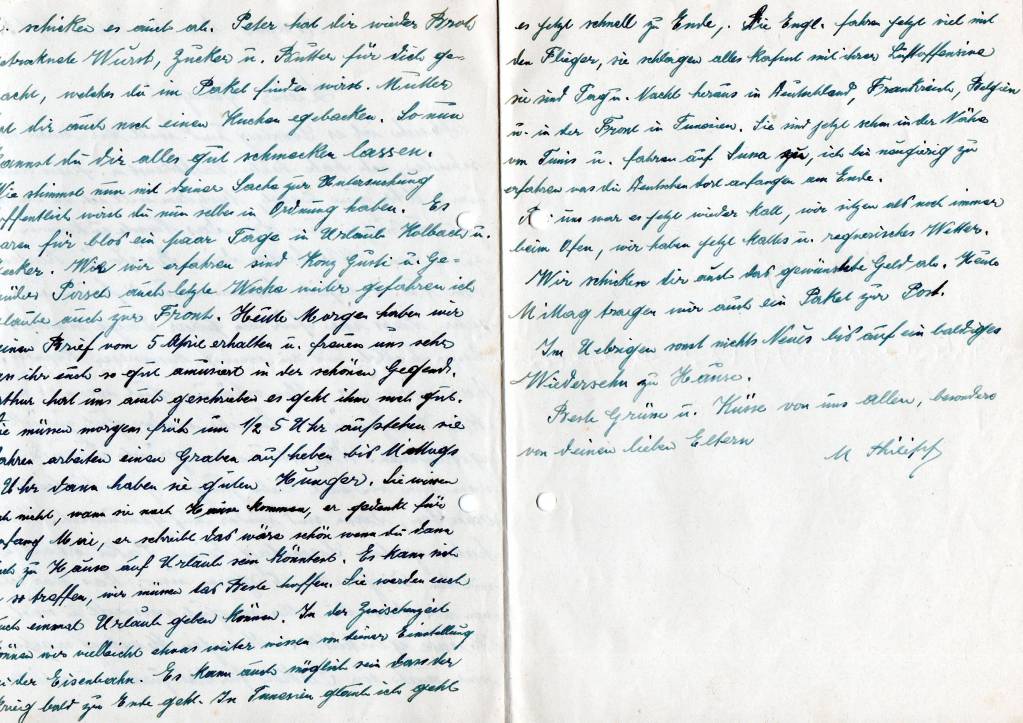 . schicken es auch ab. Peter hat dir wieder Brot
getrocknete Wurst, Zucker u. Butter für dich ge-
macht, welches du im Paket finden wirst. Mutter
hat dir auch noch einen Kuchen gebacken. So nun
kannst du dir alles gut schmecken lassen.
Wie stimmst nun mit deiner Sache zur Untersuchung
hoffentlich wirst du nun selber in Ordnung haben. Es
waren für blos ein paar Tage in Urlaub Holbach u.
ecker. Wie wir erfahren sind Konz Gusti u. Ge-
Pirsch auch letzte Woche weiter gefahren ich
glaube auch zur Front. Heute Morgen haben wir
deinen Brief vom 5 April erhalten u. freuen uns sehr
ihr euch so gut amusiert in der schönen Gegend.
Arthur hat uns auch geschrieben es geht ihm noch gut.
Sie müssen morgens früh um 1/2 5 Uhr aufstehen sie
fahren arbeiten einen Graben auf heben bis Mittags
Uhr dann haben sie guten Hunger. Sie wissen
noch nicht, wann sie nach Hause kommen, er gedenkt für
anfang Mai, er schreibt das wäre schön wenn du dann
auch zu Hause auf Urlaub sein könntest. Es kann sich
so treffen, wir müssen das Beste hoffen. Sie werden euch
auch einmal Urlaub geben können. In der Zwischenzeit
können wir vielleicht etwas weiter wissen von deiner Einstellung
bei der Eisenbahn. Es kann auch möglich sein dass der
Krieg bald zu Ende geht. In Tunesien glaub ich geht
es jetzt schnell zu Ende,. Die Engl. fahren jetzt viel mit
den Flieger, sie schlagen alles kaput mit ihrer Luftoffensive
sie sind Tag u. Nacht heraus in Deutschland, Frankreich, Belgien
u. in der Front in Tunesien. Sie sind jetzt schon in der Nähe
von Tunis u. fahren auf Susa zu, ich bin neugierig zu
erfahren was die Deutschen dort anfangen am Ende.
Bei uns war es jetzt wieder kalt, wir sitzen als noch immer
beim Ofen, wir haben jetzt kaltes u. regnerisches Wetter.
Wir schicken dir auch das gewünschte Geld ab. Heute
Mittag tragen wir auch ein Paket zur Post.
Im Uebrigen sonst nichts Neues bis auf ein baldiges
Wiedersehn zu Hause.
Beste Grüsse u. Küsse von uns allen, besonders
von deinen lieben Eltern
M Philipp